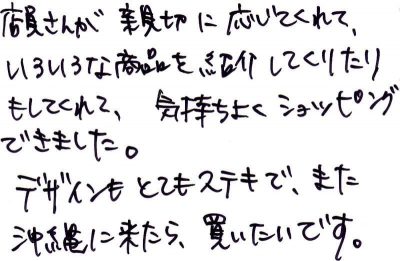 店員さんが親切に応じてくれて、
いろいろな商品を紹介してくりたり
もしてくれて、気持ちよくショッピング
できました。
デザインもとてもステキで、また
沖縄に来たら、買いたいです。